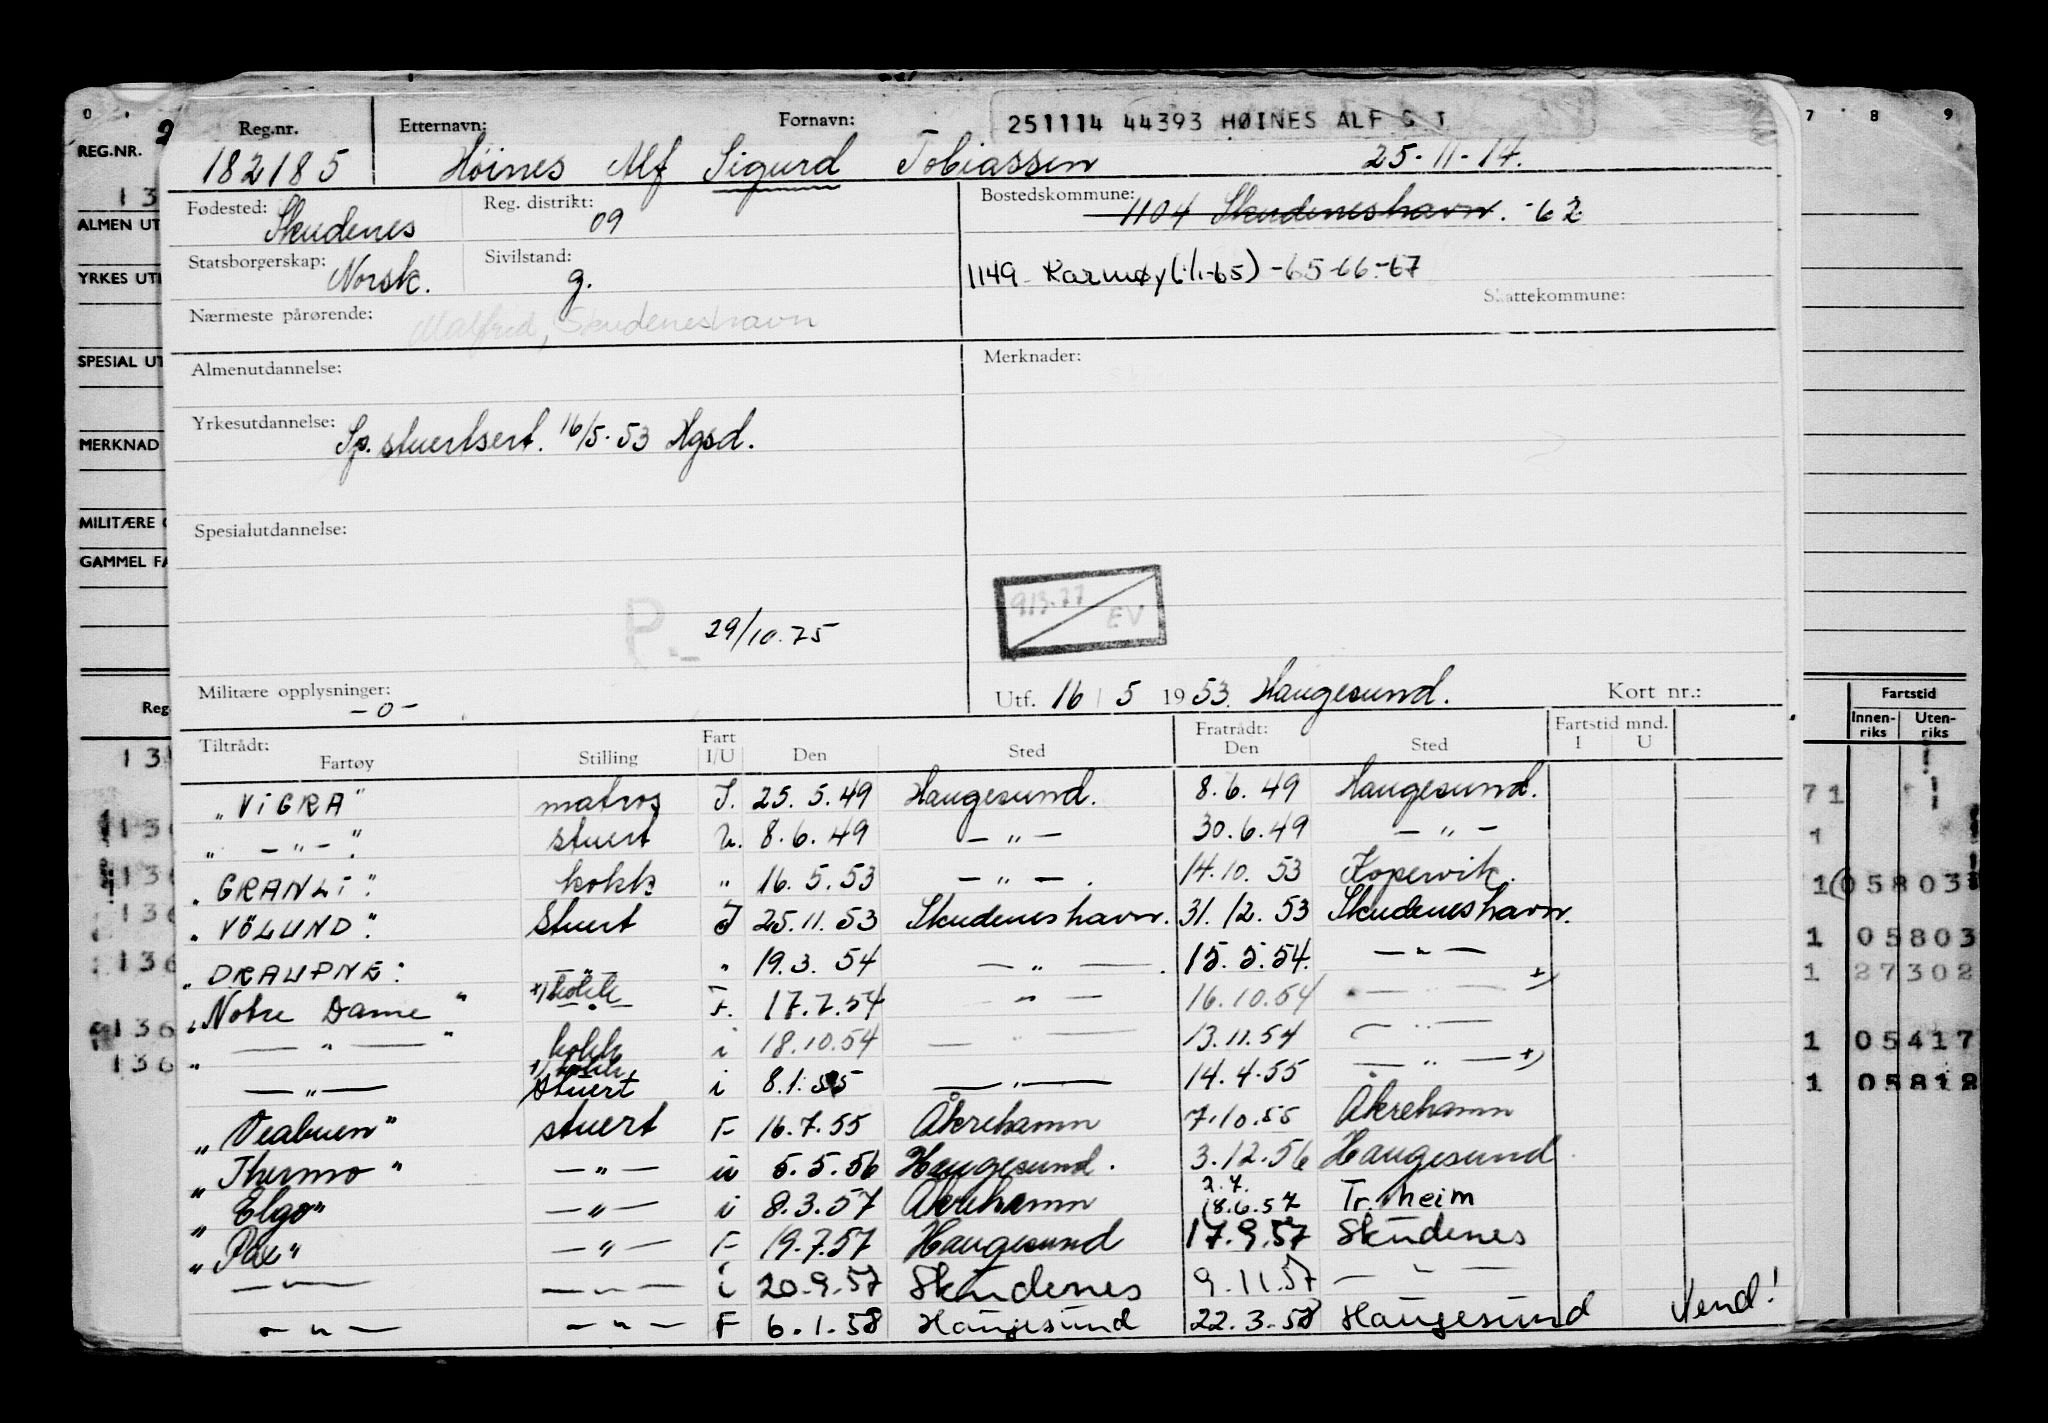 251114 44393 HØINES ALF S T
Reg.nr. Etternavn: Fornavn:
182185 Höines Alf Sigurd Tobiassen 25-11-14.
Fødested: Skudenes Reg. distrikt: 09 Bostedskommune: 1104 Skudeneshavn. -62
Statsborgerskap: Norsk. Sivilstand: g. 1149 Karmøy (1/1-65) -65-66-67
Skattekommune:
Nærmeste pårørende: Malfred, Skudeneshavn
Almenutdannelse: Merknader:
Yrkesutdannelse: Sp. stuertsert. 16/5-53 Hgsd.
Spesialutdannelse:
P.- 29/10.75
EV
Militære opplysninger: -0- Utf. 16 / 5 1953. Haugesund. Kort nr.:
Tiltrådt: Fratrådt: Fartstid mnd.
Fartøy Stilling Fart I/U Den Sted Den Sted I U
"VIGRA" matros I. 25.5.49 Haugesund. 8.6.49 Haugesund.
" - " - " stuert U. 8.6.49 - " - 30.6.49 - " -
"GRANLI". kokk " 16.5.53 - " - . 14.10.53 Kopervik.
"VÖLUND". Stuert I 25.11.53 Skudeneshavn. 31.12.53 Skudeneshavn.
"DRAUPNE: - " - " 19.3.54 - " - . 15.5.54. - " -
"Notre Dame" +) kokk F. 17.7.54 - " - 16.10.54 - " - +)
" - " - " kokk i 18.10.54 - " - 13.11.54 - " -
- " - +) kokk stuert i 8.1.55 - " - 14.4.55 - " - +)
"Veabuen" stuert F 16.7.55 Åkrehamn 7.10.55 Åkrehamn
"Thermo" - " - u 5.5.56 Haugesund. 3.12.56 Haugesund
"Elgo" - " - i 8.3.57 Åkrehamn 2.7. 18.6.57 Tr.heim
"Pax" - " - F 19.7.57 Haugesund 17.9.57 Skudenes
- " - - " - i 20.9.57 Skudenes 9.11.57 - " -
- " - - " - F 6.1.58 Haugesund 22.3.58 Haugesund Vend!
REG.NR.
ALMEN UT
YRKES UT
SPESIAL UT
MERKNAD
MILITÆRE
GAMMEL FA
Reg
7 8 9
Fartstid
Innen-riks Uten-riks
71
1
1 05803
1 05803
1 27302
1 05417
1 05812